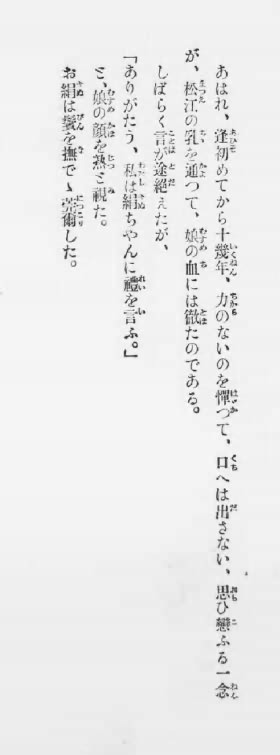 あはれ、逢初めてから十幾年、力のないのを憚つて、口へは出さない、思ひ戀ふる一念
が、松江の乳を通つて、娘の血には徹たのである。
しばらく言が途絶えたが、
「ありがたう、私は絹ちやんに禮を言ふ。」
と、娘の顔を熟と視た。
お絹は鬢を撫でゝ莞爾した。